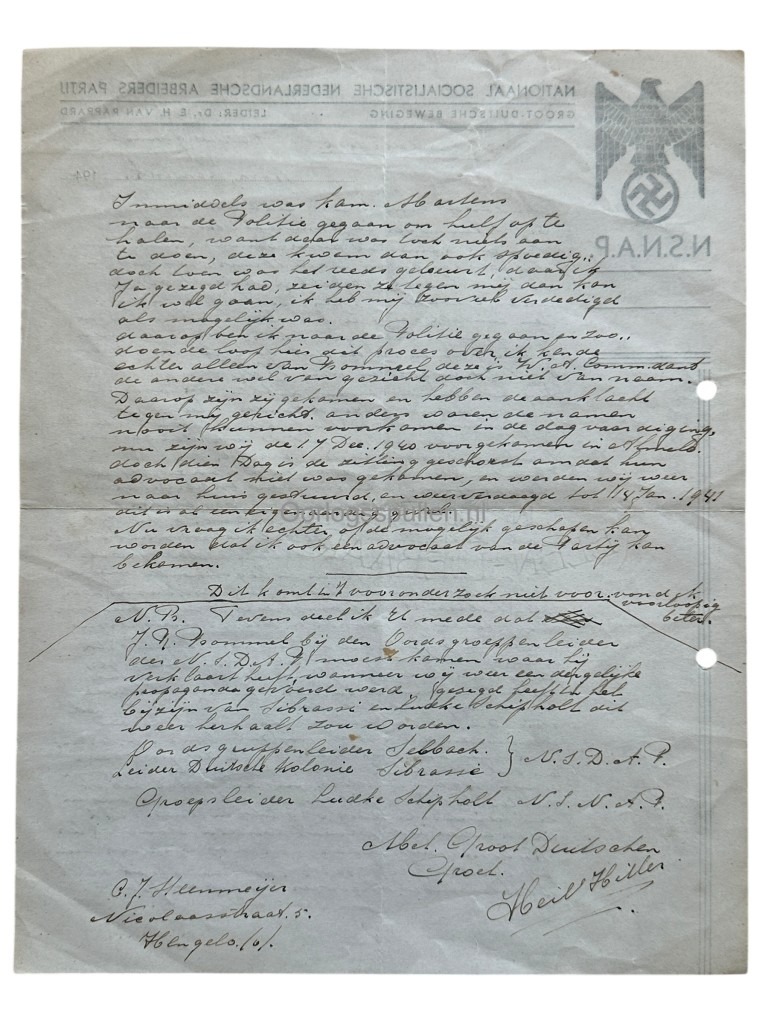 NATIONAAL SOCIALISTISCHE NEDERLANDSCHE ARBEIDERS PARTIJ
GROOT-DUITSCHE BEWEGING LEIDER: Dr. E. H. VAN RAPPARD
194
N.S.N.A.P.
Inmiddels was kam. Martens
naar de Politie gegaan om hulf op te
halen, want daar was toch niets aan
te doen, deze kwam dan ook spoedig..
doch toen was het reeds gebeurt, daar ik
Ja gezegd had, zeiden ze tegen mij dan kan
ik wel gaan, ik heb mij zooveel verdedigd
als mogelijk was.
daarop ben ik naar de Politie gegaan en zoo..
doende loop hier dit proces over, ik kende
echter alleen van Bommel, deze is W.A. Commdant
de andere wel van gezicht doch niet van naam.
Daarop zijn zij gekomen en hebben de aanklacht
tegen mij gericht. anders waren de namen
nooit kunnen voorkomen in de dagvaardiging,
nu zijn wij de 17 Dec. 1940 voorgekomen in Almelo.
doch dien Dag is de zitting geschorst omdat hun
advocaat niet was gekomen, en werden wij weer
naar huis gestuurd, en weer verdaagd tot 14 Jan. 1941
dit is al een eigenaardig geval.
Oorlogsspullen.nl
Nu vraag ik echter of de mogelijk geschapen kan
worden dat ik ook een advocaat van de Partij kan
bekomen.
Dit komt in 't vooronderzoek niet voor. vond ik
voorloopig
beter.
N.B. Tevens deel ik U mede dat
J. H. Bommel bij den Oordsgroeppenleider
der N.S.D.A.P. moest komen waar hij
verklaart heeft, wanneer wij weer een dergelijke
propaganda gevoerd werd, gezegd heeft in het
bijzijn van Sibrasse en Ludke Schipholt dit
weer herhaalt zou worden.
Oordsgruppenleider Selbach. } N.S.D.A.P.
Leider Duitsche Kolonie Sibrasse
Groepsleider Ludke Schipholt N.S.N.A.P.
Met. Groot Duitschen
Groet.
Heil Hitler.
C. J. Steenmeijer
Nicolaasstraat 5.
Hengelo (o).